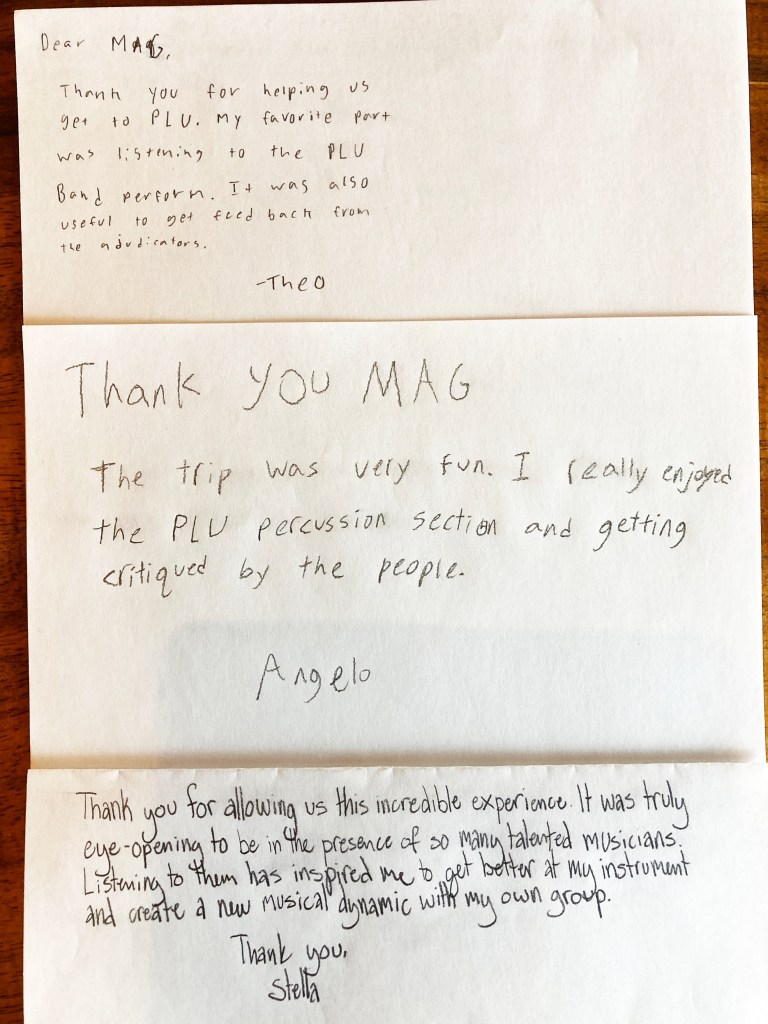 Dear MAG,
Thank you for helping us
get to PLU. My favorite part
was listening to the PLU
Band perform. It was also
useful to get feed back from
the adjudicators.
-Theo
Thank you MAG
The trip was very fun. I really enjoyed
the PLU percussion section and getting
critiqued by the people.
Angelo
Thank you for allowing us this incredible experience. It was truly
eye-opening to be in the presence of so many talented musicians.
Listening to them has inspired me to get better at my instrument
and create a new musical dynamic with my own group.
Thank you,
Stella